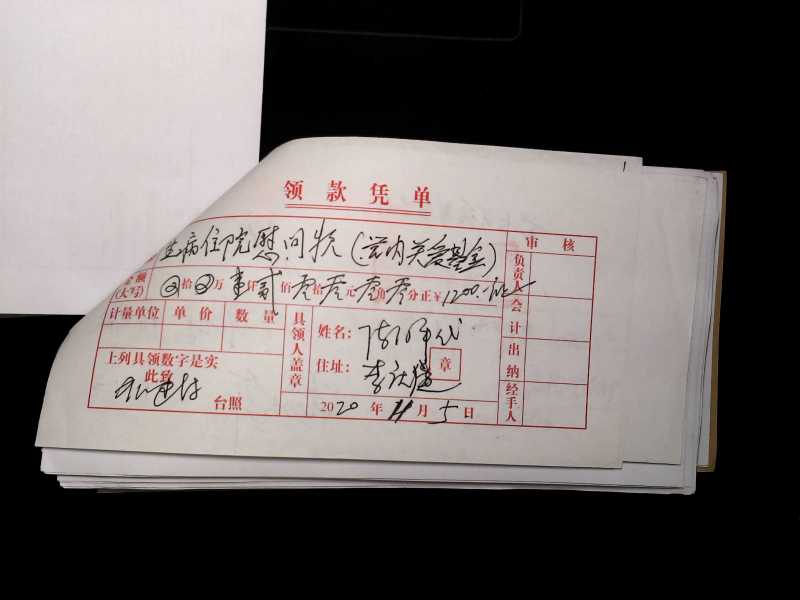 领款凭单
生病住院慰问款(党内关爱基金)
金额(大写) ⊗拾⊗万壹仟贰佰零拾零元零角零分正¥1200.-
计量单位 单价 数量
上列具领数字是实
此致
台照
具领人盖章
姓名:
住址: 章
2020年11月5日
审核
负责人
会计
出纳
经手人
1